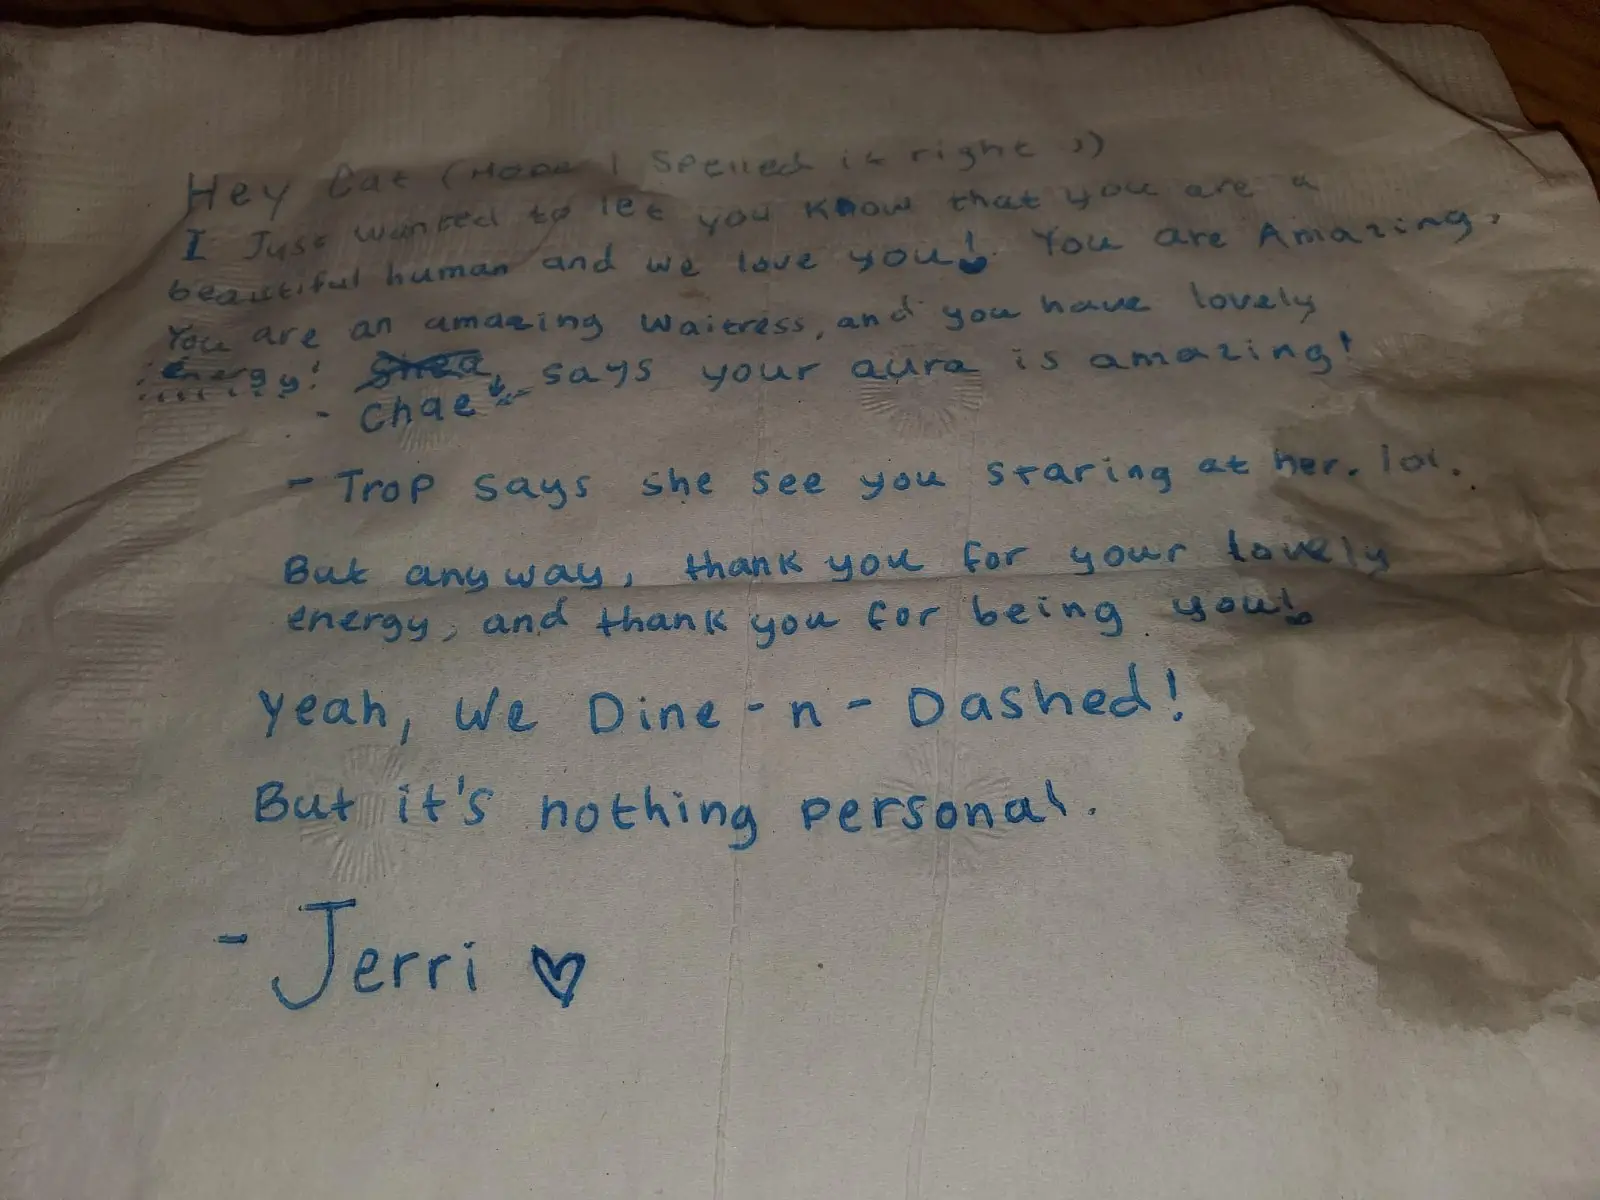 Hey Cat (Hope I Spelled it right :))
I Just wanted to let you know that you are a
beautiful human and we love you! You are Amazing.
You are an amazing waitress, and you have lovely
energy! says your aura is amazing!
- Chae
- Trop says she see you staring at her. lol.
But anyway, thank you for your lovely
energy, and thank you for being you!
Yeah, We Dine-n-Dashed!
But it's nothing personal.
- Jerri ♡